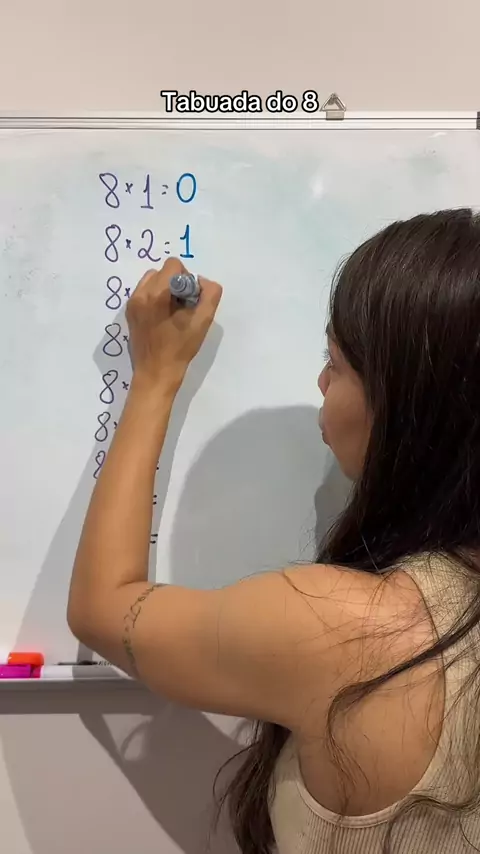 Tabuada do 8
8 × 1 = 0
8 × 2 = 1
8 ×
8 ×
8 ×
8 ×
8
=
=